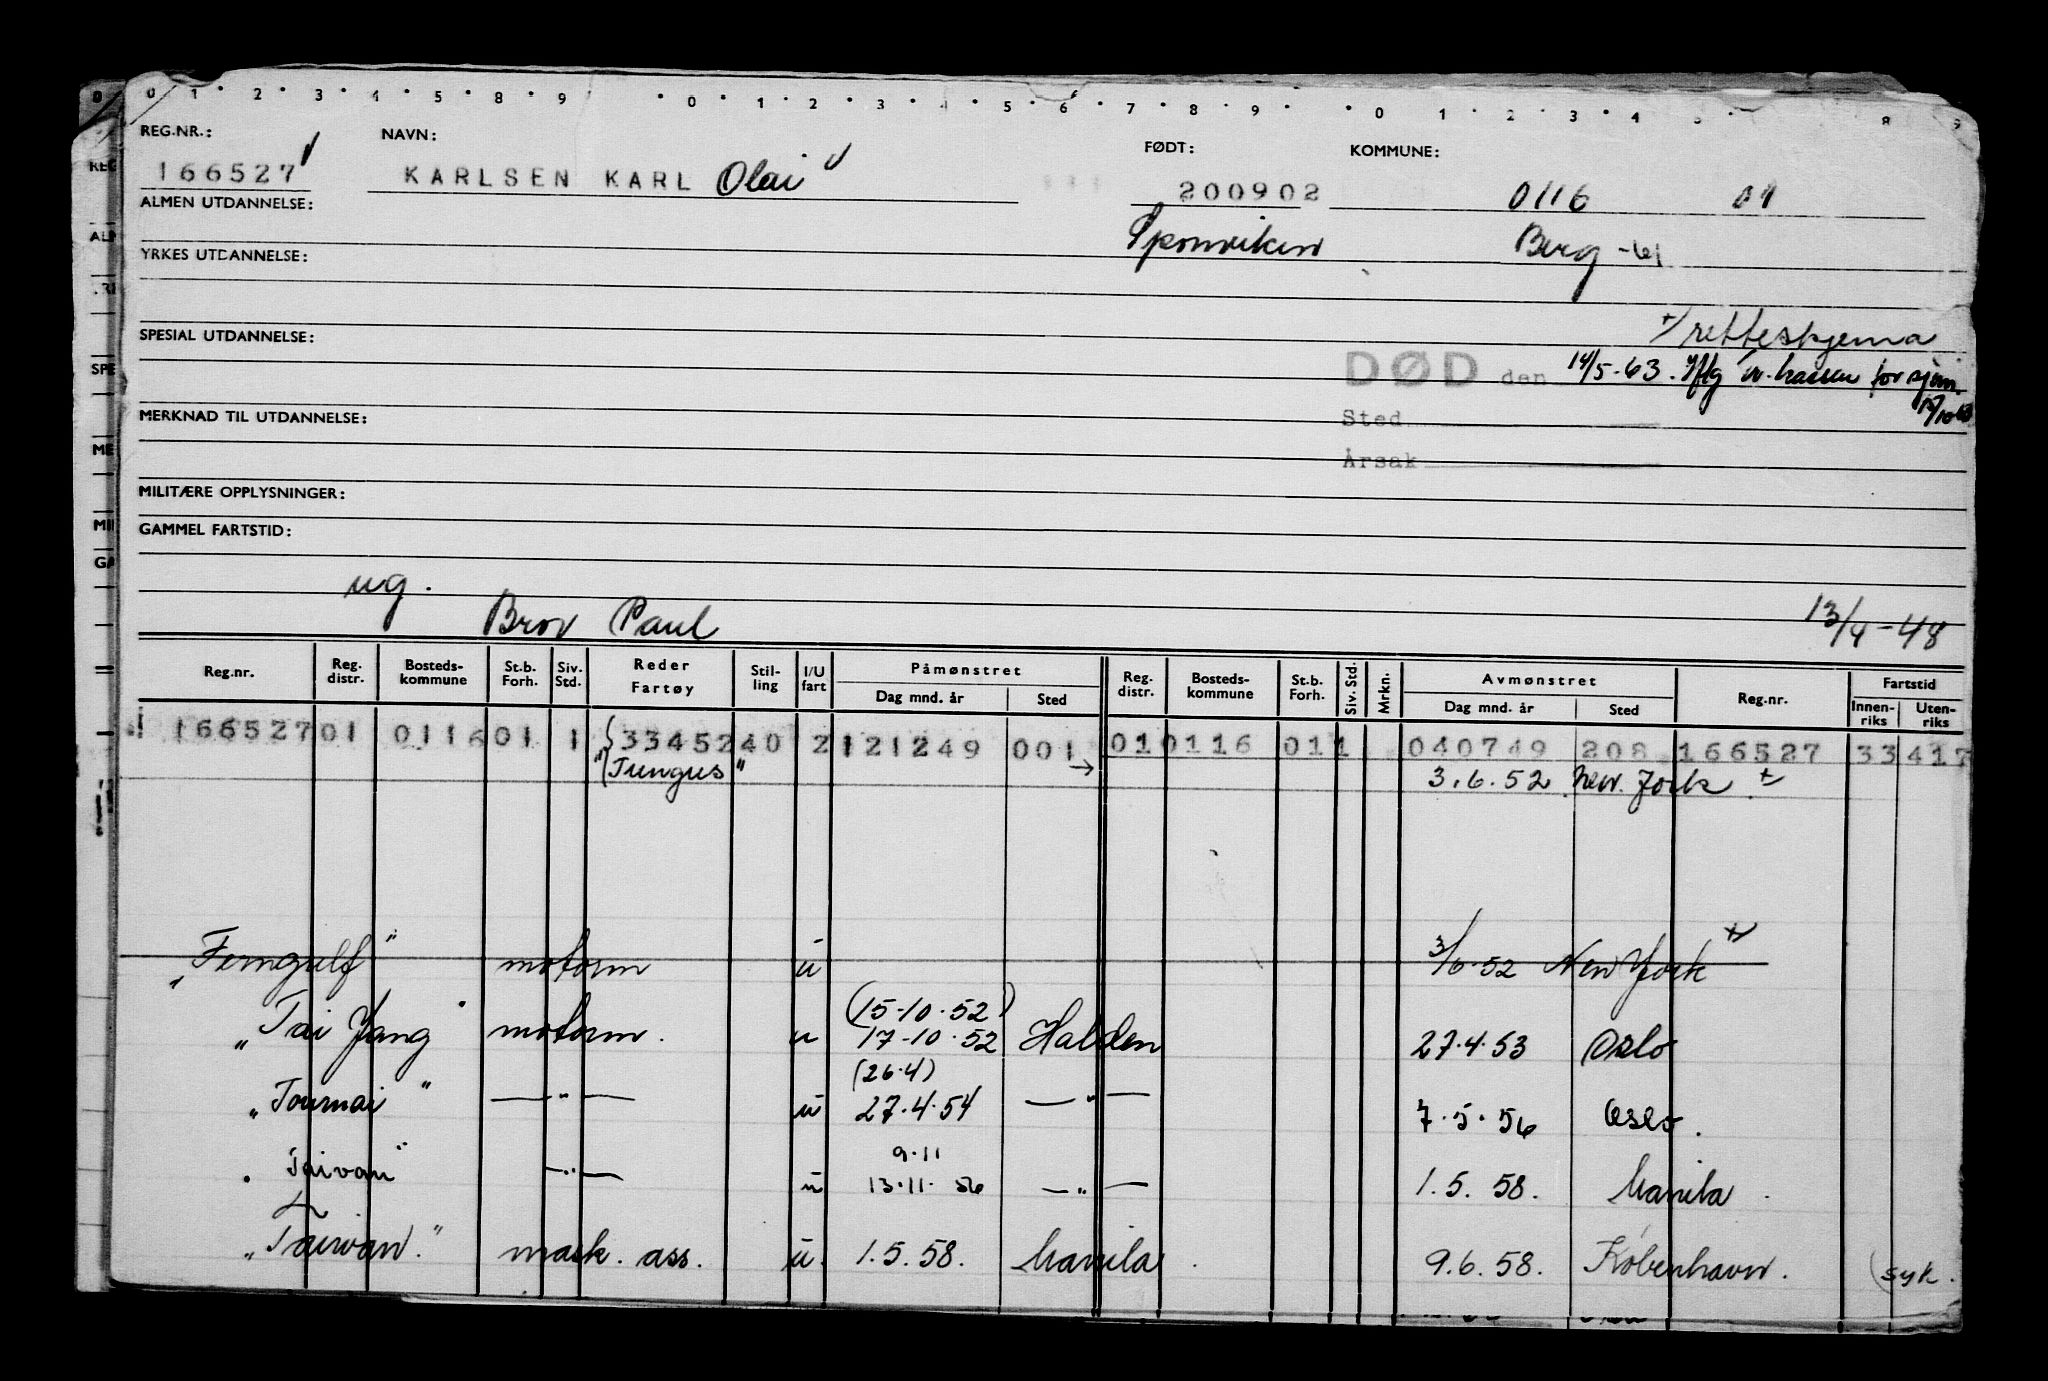 0 1 2 3 4 5 8 9 0 1 2 3 4 5 6 7 8 9 0 1 2 3 4 5 8 9
REG.NR.: NAVN: FØDT: KOMMUNE:
166527 KARLSEN KARL Olai 200902 0116 01
ALMEN UTDANNELSE: Sponviken Berg -61
YRKES UTDANNELSE:
+/ retteskjema
SPESIAL UTDANNELSE: DØD den 14/5-63. Iflg tr. kassen for sjøm.
15/10 63
MERKNAD TIL UTDANNELSE: Sted
Årsak
MILITÆRE OPPLYSNINGER:
GAMMEL FARTSTID:
ug.
Bror Paul 13/4-48
Reg.nr. Reg. distr. Bosteds-kommune St.b. Forh. Siv. Std. Reder Fartøy Stil-ling I/U fart Påmønstret Dag mnd. år Sted Reg. distr. Bosteds-kommune St.b. Forh. Siv. Std. Mrkn. Avmønstret Dag mnd. år Sted Reg.nr. Fartstid Innen-riks Uten-riks
166527 01 0116 01 1 33452 40 2 121249 001 01 0116 01 1 040749 208 166527 33 417
"Tungus" → 3.6.52 New. York +
"Ferngulf" motorm u 3/6-52 New York +/
"Tai Yang" motorm. u (15-10.52) 17-10.52 Halden 27.4.53 Oslo
(26.4)
"Tournai" —"— u 27.4.54 —"— 7.5.56 Oslo.
9.11
"Taivan" —"— u 13.11.56 —"— 1.5.58. Manila.
"Taiwan." mask. ass. u. 1.5.58. Manila. 9.6.58. København. (syk.